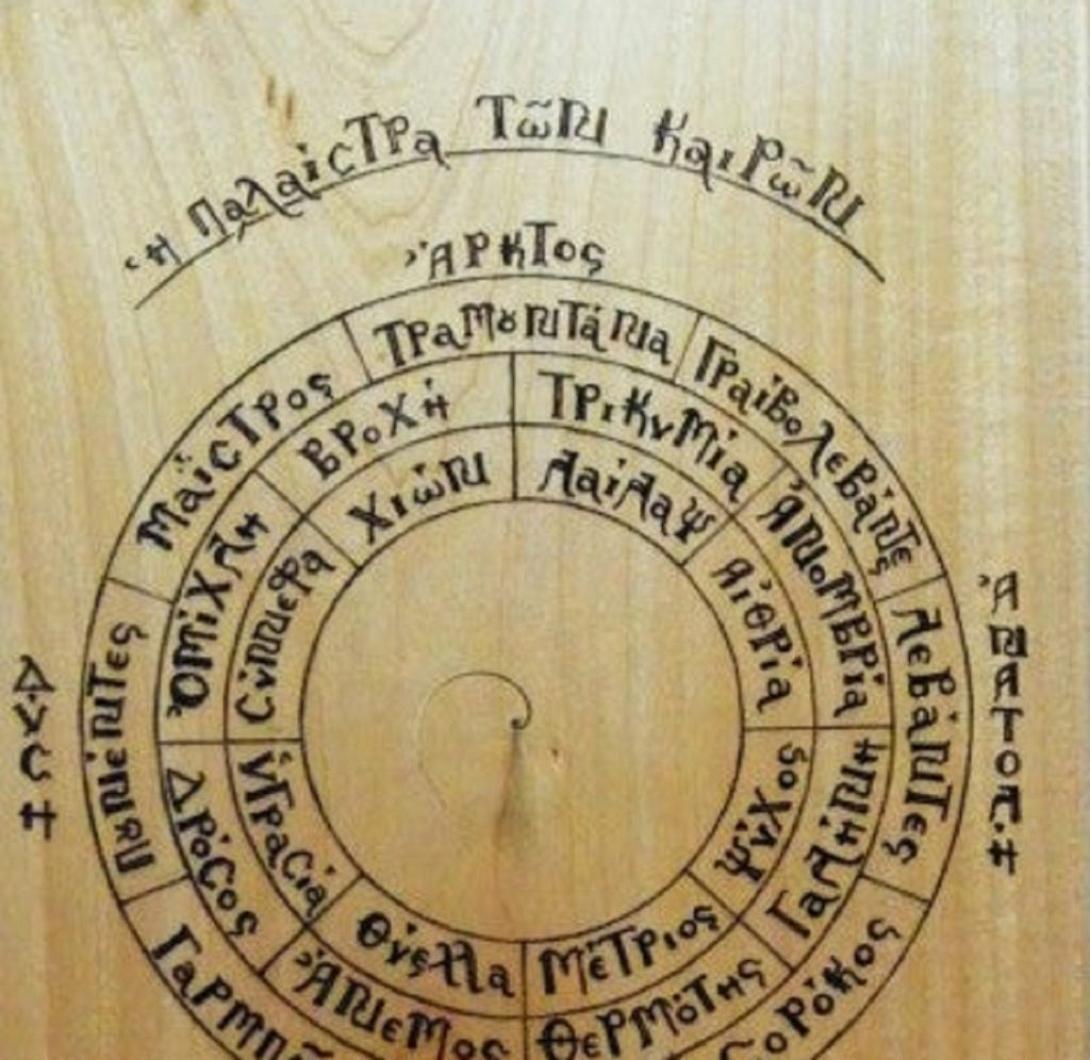 Ἡ Παλαίστρα Τῶν Καιρῶν
Ἄρκτος
Τραμȣντάνα
Γραῖβολεβάντε
Λεβάντες
Σορόκος
Μαΐστρος
Βροχή
Τρικυμία
Ἀνομβρία
Γαλήνη
Θερμότης
Ἄνεμος
Δρόσος
Ὁμίχλη
Χιών
Λαίλαψ
Αἰθρία
Ψύχος
Μέτριος
Θύελλα
Ὑγρασία
Σύννεφα
Δύση